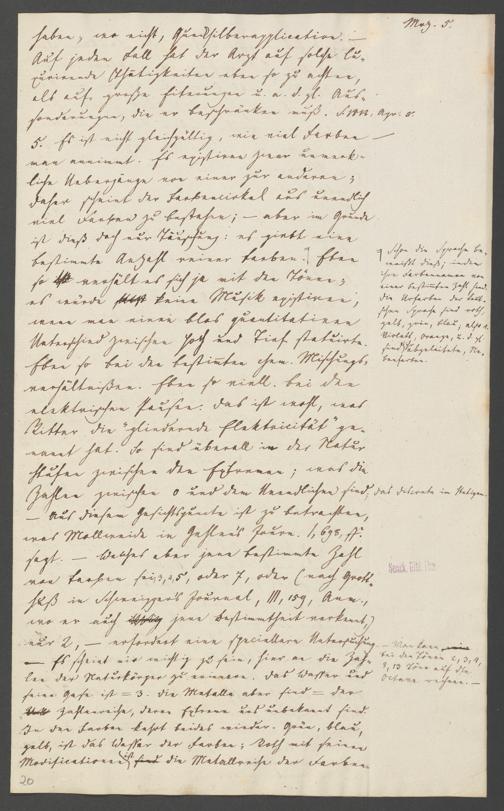 Mrz. 5.
haben, wo nicht, Quecksilberapplication. —
Auf jeden Fall hat der Arzt auf solche
Thätigkeiten eben so zu achten,
als auf große Eiterungen u. a. dgl. Aus-
sonderungen, die er beschränken muß.
5. Es ist nicht gleichgültig, wie viel Farben —
man annimmt. Es existiren zwar unmerk-
liche Uebergänge von einer zur anderen;
daher scheint der Farbencirkel aus unendlich
viel Farben zu bestehen; — aber im Grunde
ist dieß doch nur Täuschung: es giebt eine
bestimmte Anzahl reiner Farben. Eben
so verhält es sich ja mit den Tönen;
es würde keine Musik existiren,
wenn man einen blos quantitativen
Unterschied zwischen Hoch und Tief statuirte.
Eben so bei den bestimmten chem. Mischungs-
verhältnißen. Eben so viell. bei den
elektrischen Pausen. Das ist wohl, was
Ritter die "gliedernde Elektricität" ge-
nannt hat. So sind überall in der Natur
Stufen zwischen den Extremen; was die
Zahlen zwischen 0 und dem Unendlichen sind, das Discrete im Stetigen.
— Aus diesem Gesichtspunkte ist zu betrachten,
was Mollweide in Gehlen's Journ. 1, 693, ff.
sagt. — Welches aber jene bestimmte Zahl
von Farben sei, 3, 5, oder 7, oder (nach Grott-
huß in Schweigger's Journal, III, 159, Anm.,
wo er auch jene Bestimmtheit verkennt,)
nur 2, — erfordert eine speciellere Untersuchung.
— Es scheint mir wichtig zu sein, hier an die Zah-
len der Naturkörper zu erinnern. Das Wasser und
seine Gase ist = 3. die Metalle aber sind = der
Zahlenreihe, deren Extreme uns unbekannt sind.
In den Farben kehrt beides wieder. Grün, blau,
gelb, ist das Wasser der Farben; Roth mit seinen
Modificationen die Metallreihe der Farben
Schon die Sprache be-
weißt dieß, indem
ihre Farbennamen von
einer bestimten Zahl sind
die Urfarben der
schen Sprache sind roth,
gelb, grün, blau, also 4.
Violett, orange, u. d. gl.
sind abgeleitete, Ne-
benfarben.
Senck. Bibl. Ffm
— Man kann
bei den Tönen 2, 3, 4,
8, 13 Töne auf die
Octave rechnen. —
20